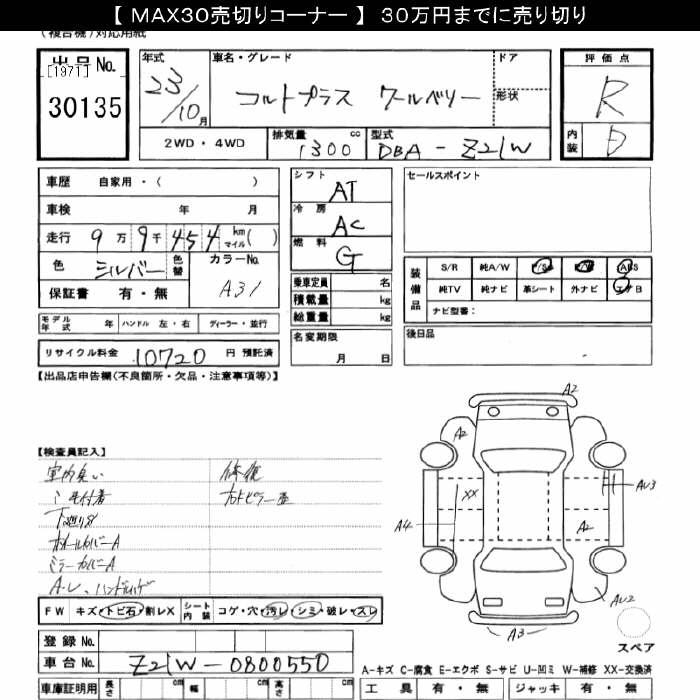 【 MAX30売切りコーナー 】 30万円までに売り切り
(複合機)対応用紙
出品No.
[1971]
30135
年式
23/10月
車名・グレード
コルトプラス クールベリー
ドア
形状
評価点
R
内装
D
2WD・4WD
排気量
1300 cc
型式
DBA-Z21W
車歴 自家用・( )
車検 年 月
走行 9万9千454 km マイル( )
色 シルバー 色替 カラーNo. A31
保証書 有・無
シフト AT
冷房 AC
燃料 G
乗車定員 名
積載量 kg
総重量 kg
セールスポイント
装備品
S/R 純A/W P/S P/W ABS
純TV 純ナビ 革シート 外ナビ エアB
ナビ型番:
モデル年式 年 ハンドル 左・右 ディーラー・並行
名変期限
月 日
後日品
リサイクル料金 10720 円 預託済
【出品店申告欄(不良箇所・欠品・注意事項等)】
【検査員記入】
室内臭い
毛付着
下廻りサビ
ホイールカバーA
ミラーカバーA
修復
A2
A2
XX
AU3
A4
A2
AU2
A3
スペア
FW キズ・トビ石・割レX シート内装 コゲ・穴・汚レ・シミ・破レ・スレ
登録No.
車台No. Z21W-0800550
車庫証明用 長さ cm 幅 cm 高さ cm
A-キズ C-腐食 E-エクボ S-サビ U-凹ミ W-補修 XX-交換済
工具 有・無 ジャッキ 有・無